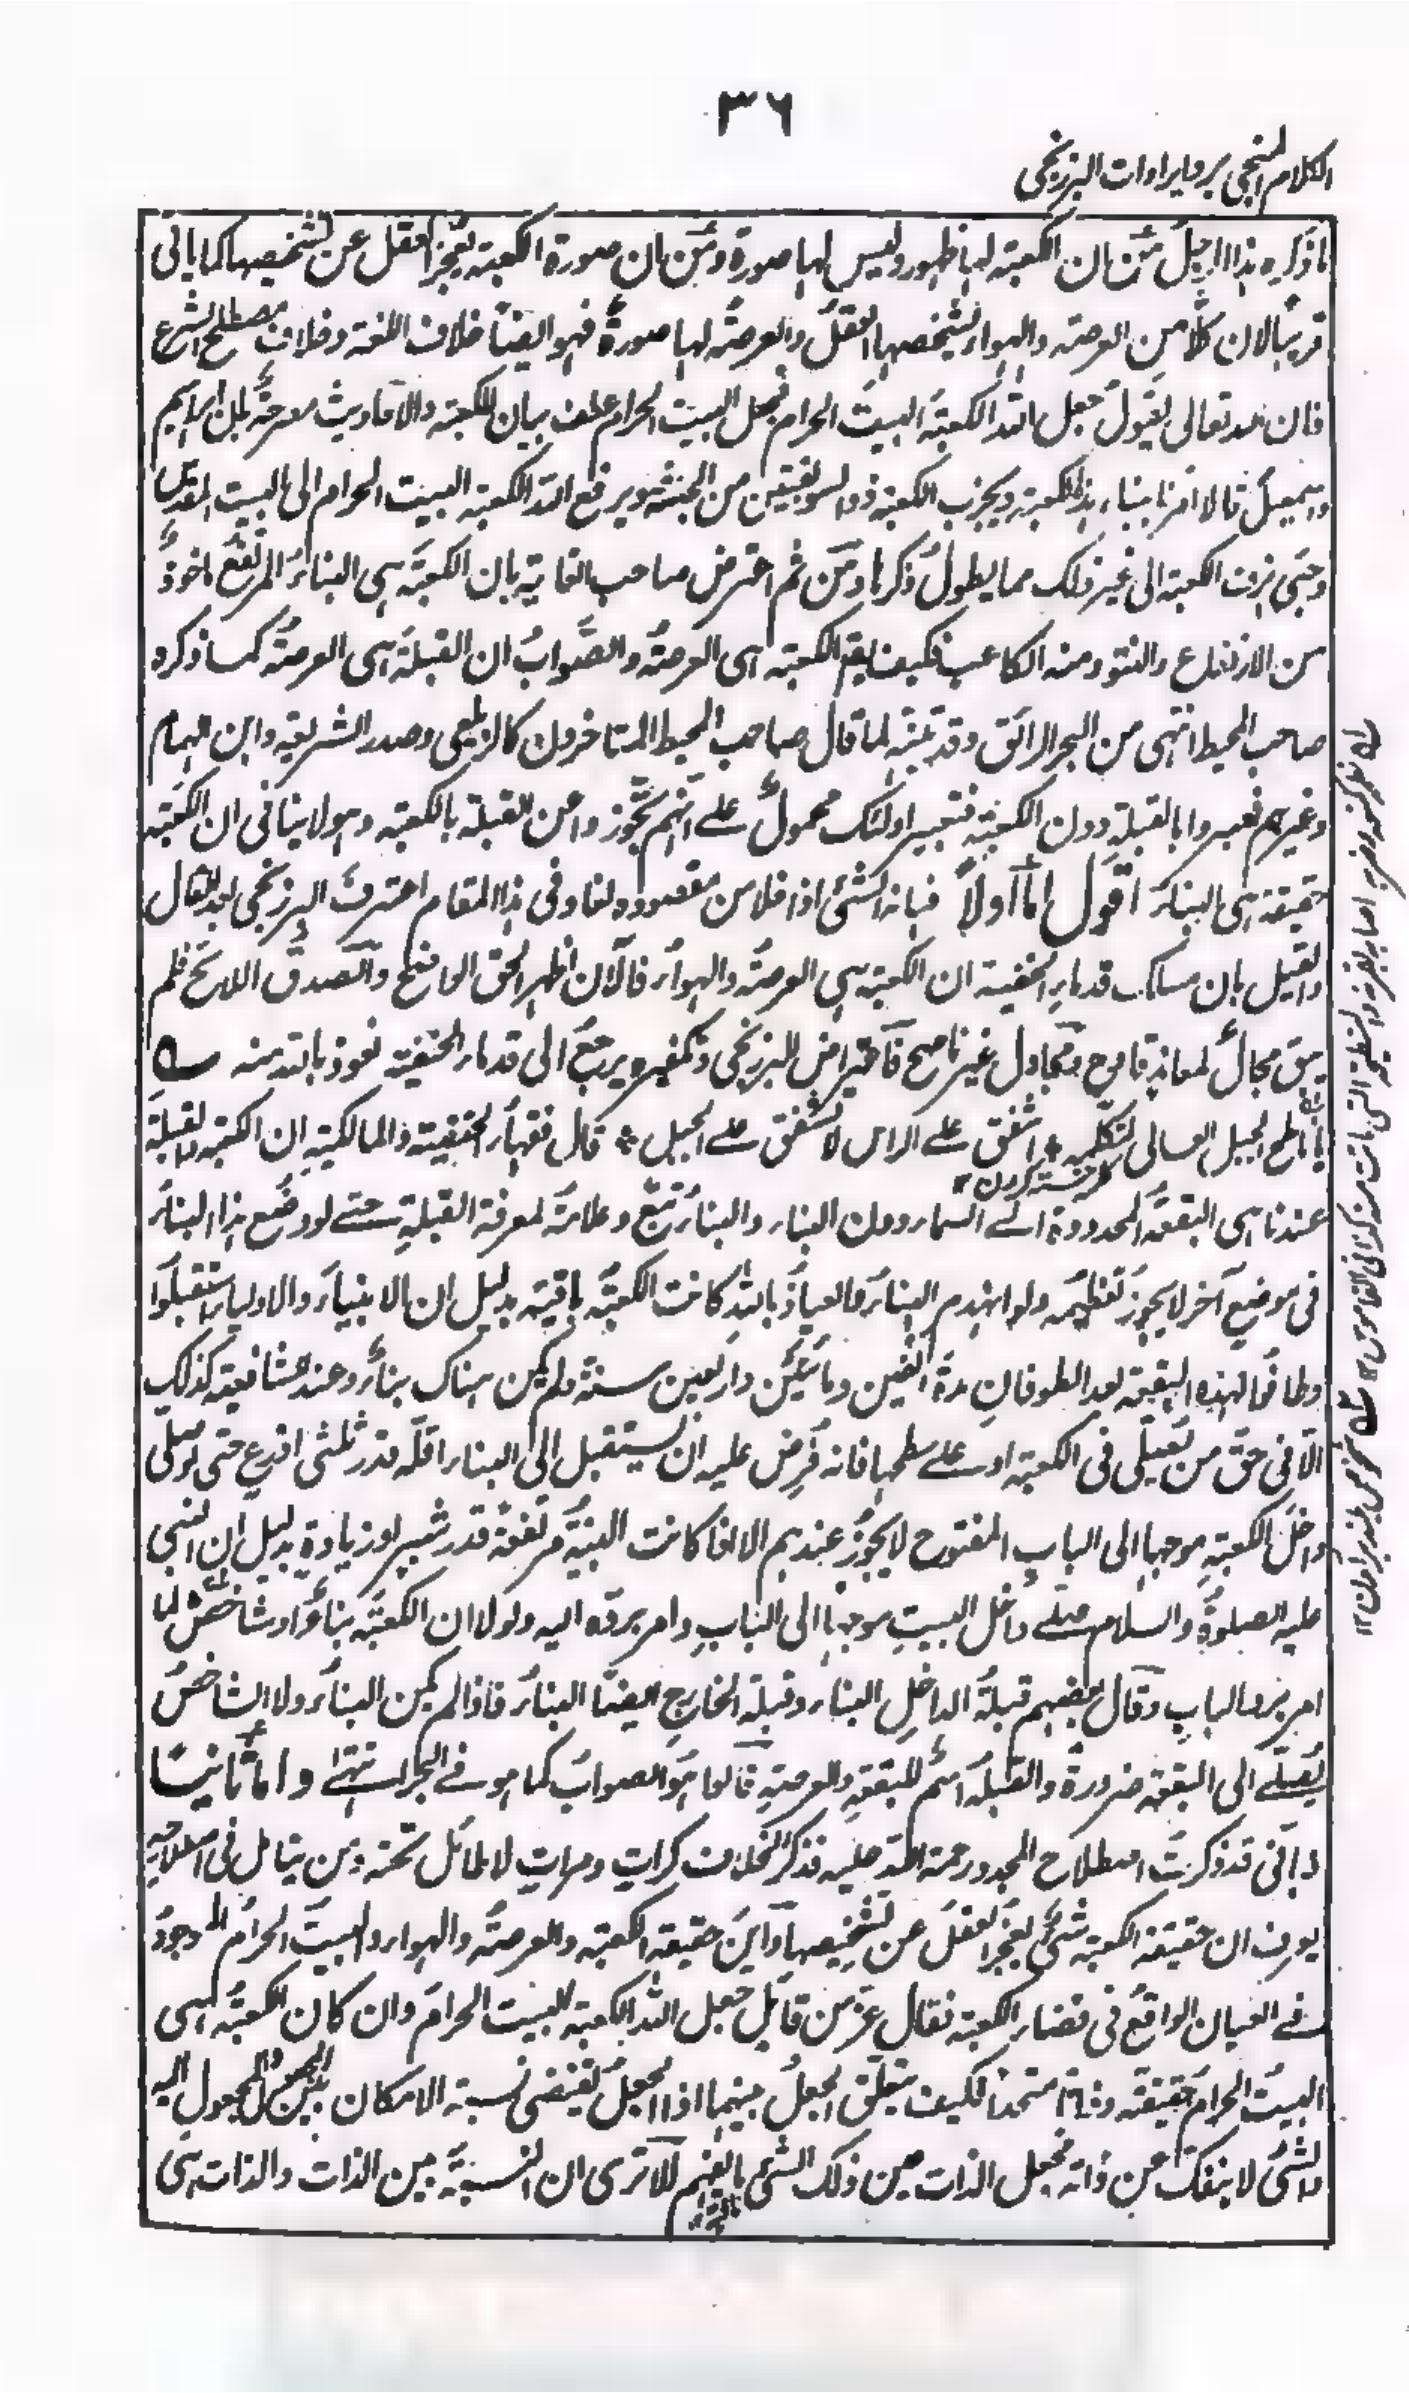 ٣٦
الكلام المنجي برد ايرادات البرزنجي
ما ذكره هذا الرجل من ان الكعبة لها ظهور وليس لها صورة ومن ان صورة الكعبة يعجز العقل عن تشخيصها كما ياتي
قريبًا لان كلًّا من العرصة والهواء يشخصها العقل والعرصة لها صورةٌ فهو ايضًا خلاف اللغة وخلاف مصطلح الشرع
فان الله تعالى يقول جعل الله الكعبة البيت الحرام فجعل البيت الحرام عطف بيان للكعبة والاحاديث مصرحةٌ بان ابراهيم
واسمعيل قالا امرنا ببناء هذه الكعبة ويخرب الكعبة ذو السويقتين من الحبشة ويرفع الله الكعبة البيت الحرام الى البيت المقدس
وحتى نزوت الكعبة الى غير ذلك مما يطول ذكرها ومن ثم اعترض صاحب الغاية بان الكعبة هي البناء المرتفع ماخوذٌ
من الارتفاع والنتو ومنه الكاعب فكيف يقم الكعبة هي العرصة والصواب ان القبلة هي العرصة كما ذكره
صاحب المحيط انتهى من البحر الرائق وقد تنبه لما قال صاحب المحيط المتاخرون كالزيلعي وصدر الشريعة وابن الهمام
وغيرهم فعبروا بالقبلة دون الكعبة فتعبير اولئك محمولٌ على انهم تجوزوا عن القبلة بالكعبة وهو لا ينافي ان الكعبة
حقيقة هي البناء اقول اما اولًا فبانه الشئ اذا خلا من مقصوده لغا وفي هذا المقام اعترف البرزنجي بعد القال
والقيل بان مسلك قدماء الحنفية ان الكعبة هي العرصة والهواء فالآن اظهر الحق الواضح والصدق اللائح فلم
يبق مجالٌ لمعاند قادح ومجادل غير ناصح فاعتراض البرزنجي وتكفيره يرجع الى قدماء الحنفية نعوذ بالله منه ــه
يا ناطح الجبل العالي لتكلمه ٭ اشفق على الراس لا تشفق على الجبل ٭ قال فقهاء الحنفية والمالكية ان الكعبة والقبلة
عندنا هي البقعة المحدودة الى السماء دون البناء والبناء تبع وعلامة لمعرفة القبلة حتى لو وضع هذا البناء
في موضع آخر لا يجوز تعظيمه ولو انهدم البناء والعياذ بالله كانت الكعبة باقية بدليل ان الانبياء والاولياء استقبلوا
وطافوا لهذه البقعة بعد الطوفان مدة الفين ومائتين واربعين سنة ولم يكن هناك بناء وعند الشافعية كذلك
الا في حق من يصلي في الكعبة او على سطحها فانه فرض عليه ان يستقبل الى البناء اقله قدر ثلثي اذرع حتى لو صلى
داخل الكعبة موجها الى الباب المفتوح لا يجوز عندهم الا اذا كانت البنية مرتفعة قدر شبر او زيادة بدليل ان النبي
عليه الصلوة والسلام صلى داخل البيت موجها الى الباب وامر برده اليه ولولا ان الكعبة بناء او شاخص لما
امر برد الباب وقال بعضهم قبلة الداخل البناء وقبلة الخارج ايضًا البناء فاذا لم يكن البناء ولا الشاخص
يصلي الى البقعة ضرورة والقبلة اسم للبقعة والعرصة قالوا هو الصواب كما هو في البحر انتهى واما ثانيًا
فباني قد ذكرت اصطلاح المجدد رحمة الله عليه فذكر الخلاف كرات ومرات لا طائل تحته ومن يتامل في اصطلاحه
يعرف ان حقيقة الكعبة شئ يعجز العقل عن تشخيصها واين حقيقة الكعبة والعرصة والهواء والبيت الحرام الموجود
في العيان الواقع في فضاء الكعبة فقال عز من قائل جعل الله الكعبة البيت الحرام وان كان الكعبة هي
البيت الحرام حقيقة وذاتا متحدا فكيف يتعلق الجعل بينهما اذ الجعل يقتضي نسبة الامكان بين المجعول والمجعول اليه
والشئ لا ينفك عن ذاته فجعل الذات عين ذلك الشئ الا ترى ان النسبة بين الذات والذات هي